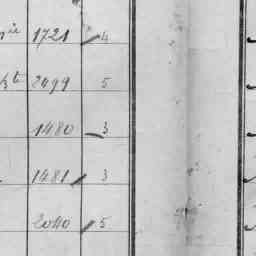 1721 4
2499 5
1480 3
1481 3
2040 5